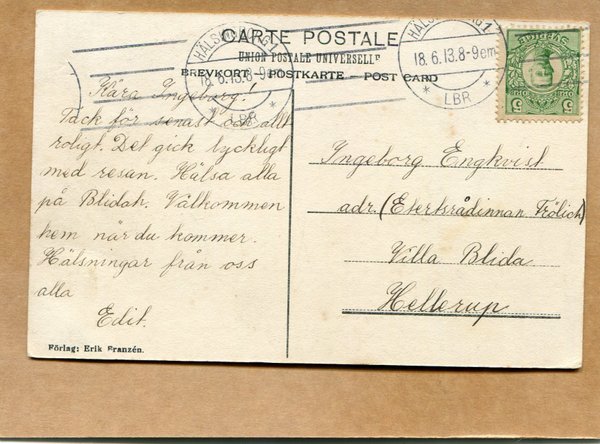 CARTE POSTALE
UNION POSTALE UNIVERSELLE
BREVKORT - POSTKARTE - POST CARD
HÄLSINGBORG 1
18.6.13.8-9em
LBR
HÄLSINGBORG 1
18.6.13.8-9em
LBR
SVERIGE
5 5
Kära Ingeborg!
Tack för senast och allt
roligt. Det gick lyckligt
med resan. Hälsa alla
på Blidah. Välkommen
hem när du kommer.
Hälsningar från oss
alla
Edit.
Ingeborg Engkvist
adr. (Etertsrådinnan Frölich)
Villa Blida
Hellerup
Förlag: Erik Franzén.